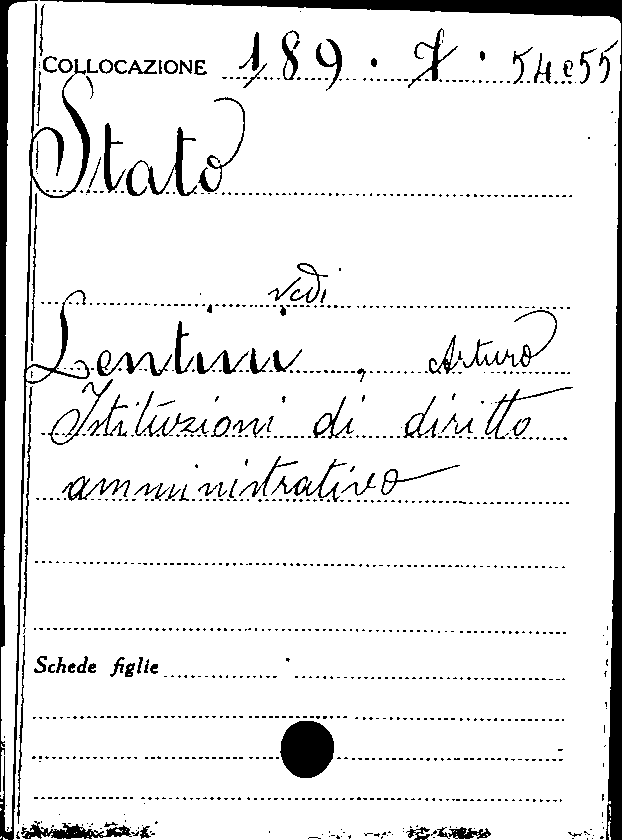 COLLOCAZIONE 189 · 7 · 54 e 55
Stato
vedi
Lentini, Arturo
Istituzioni di diritto
amministrativo
Schede figlie